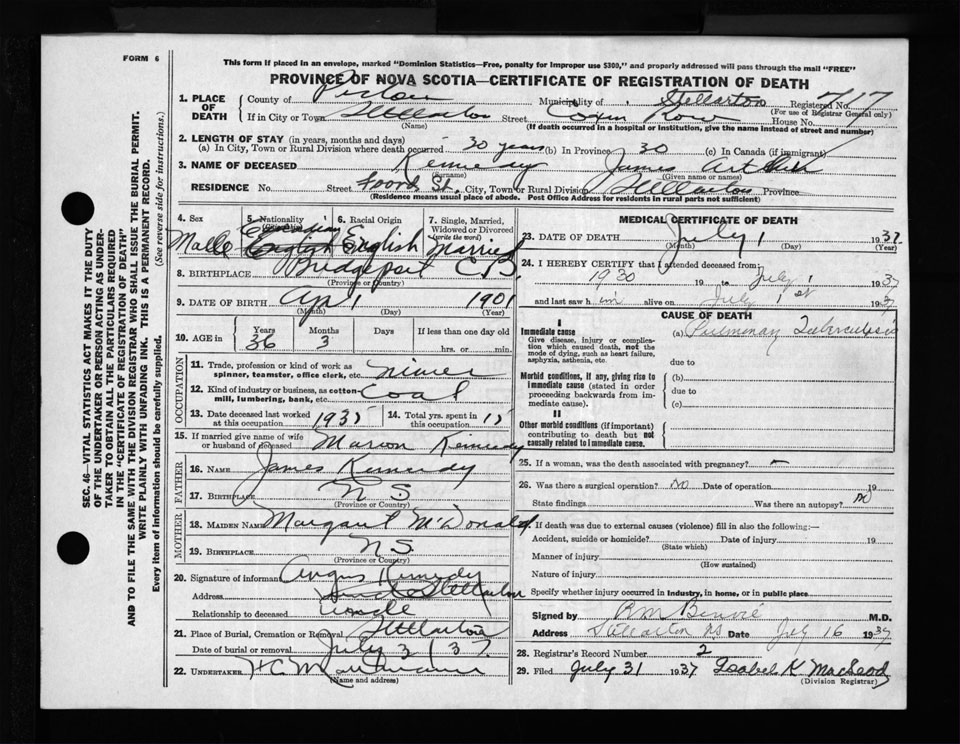 FORM 6
This form if placed in an envelope, marked "Dominion Statistics—Free, penalty for improper use $300," and properly addressed will pass through the mail "FREE"
PROVINCE OF NOVA SCOTIA—CERTIFICATE OF REGISTRATION OF DEATH
SEC. 46—VITAL STATISTICS ACT MAKES IT THE DUTY
OF THE UNDERTAKER OR PERSON ACTING AS UNDER-
TAKER TO OBTAIN ALL THE PARTICULARS REQUIRED
IN THE "CERTIFICATE OF REGISTRATION OF DEATH"
AND TO FILE THE SAME WITH THE DIVISION REGISTRAR WHO SHALL ISSUE THE BURIAL PERMIT.
WRITE PLAINLY WITH UNFADING INK. THIS IS A PERMANENT RECORD.
Every item of information should be carefully supplied. (See reverse side for instructions.)
1. PLACE OF DEATH
County of Pictou Municipality of Stellarton Registered No. 717
(For use of Registrar General only)
If in City or Town Stellarton Street Row House No.
(Name) (If death occurred in a hospital or institution, give the name instead of street and number)
2. LENGTH OF STAY (in years, months and days)
(a) In City, Town or Rural Division where death occurred 30 years (b) In Province 30 (c) In Canada (if immigrant)
3. NAME OF DECEASED Kennedy James
(Surname) (Given name or names)
RESIDENCE No. Street Foord St. City, Town or Rural Division Stellarton Province
(Residence means usual place of abode. Post Office Address for residents in rural parts not sufficient)
4. Sex Male
5. Nationality Canadian English
6. Racial Origin English
7. Single, Married, Widowed or Divorced (write the word) Married
8. BIRTHPLACE Bridgeport C B
(Province or Country)
9. DATE OF BIRTH Apr 1 1901
(Month) (Day) (Year)
10. AGE in Years 36 Months 3 Days If less than one day old hrs. or min.
OCCUPATION
11. Trade, profession or kind of work as spinner, teamster, office clerk, etc. Miner
12. Kind of industry or business, as cotton-mill, lumbering, bank, etc. Coal
13. Date deceased last worked at this occupation 1935
14. Total yrs. spent in this occupation 15
15. If married give name of wife or husband of deceased Marion Kennedy
FATHER
16. NAME James Kennedy
17. BIRTHPLACE N S
(Province or Country)
MOTHER
18. MAIDEN NAME Margaret McDonald
19. BIRTHPLACE N S.
(Province or Country)
20. Signature of informant Angus Kennedy
Address Stellarton
Relationship to deceased Uncle
21. Place of Burial, Cremation or Removal Stellarton
Date of burial or removal July 3 / 37
22. UNDERTAKER
(Name and address)
MEDICAL CERTIFICATE OF DEATH
23. DATE OF DEATH July 1 1937
(Month) (Day) (Year)
24. I HEREBY CERTIFY that I attended deceased from:
1930 19 to July 1 1937
and last saw him alive on July 1st 1937
CAUSE OF DEATH
I
Immediate cause
Give disease, injury or complication which caused death, not the mode of dying, such as heart failure, asphyxia, asthenia, etc.
(a) Pulmonary Tuberculosis
due to
Morbid conditions, if any, giving rise to immediate cause (stated in order proceeding backwards from immediate cause).
(b)
due to
(c)
II
Other morbid conditions (if important) contributing to death but not causally related to immediate cause.
25. If a woman, was the death associated with pregnancy? —
26. Was there a surgical operation? No Date of operation 19
State findings Was there an autopsy? No
27. If death was due to external causes (violence) fill in also the following:—
Accident, suicide or homicide? Date of injury 19
(State which)
Manner of injury
(How sustained)
Nature of injury
Specify whether injury occurred in Industry, in home, or in public place
Signed by M.D.
Address Stellarton NS Date July 16 1937
28. Registrar's Record Number 2
29. Filed July 31 1937 Isabel K MacLeod
(Division Registrar)